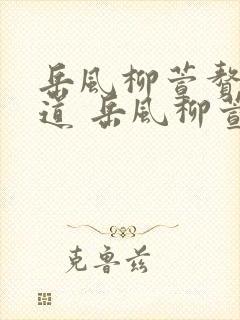 岳风柳萱赘
道 岳风柳萱
克鲁兹